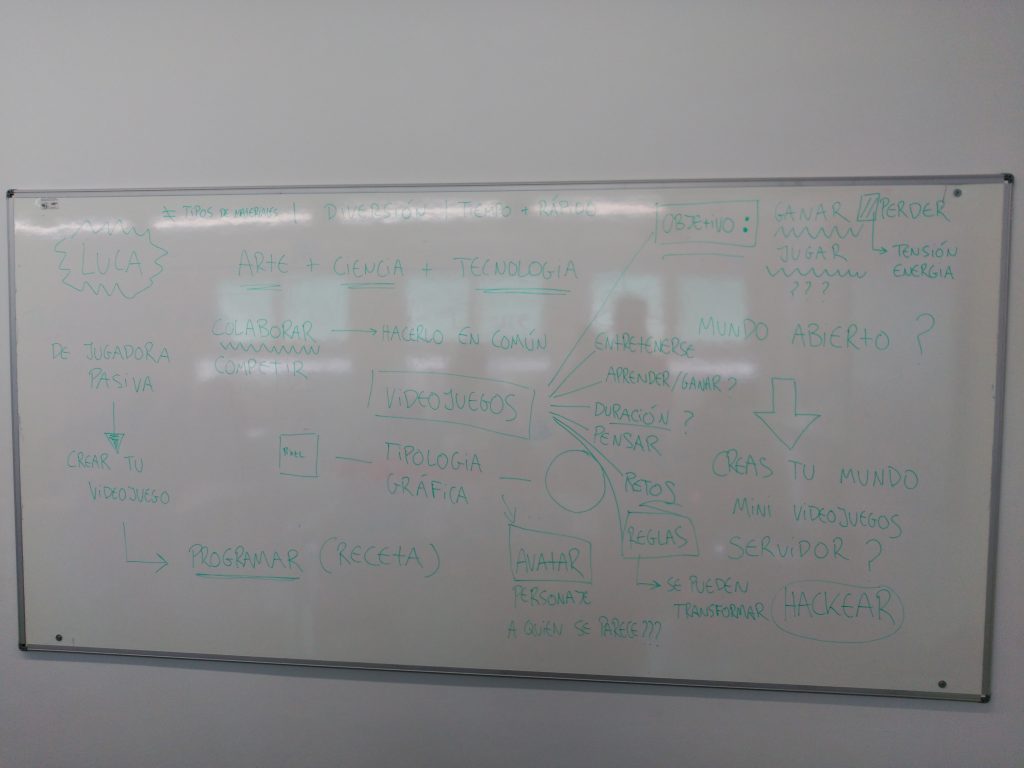 ≠ TIPOS DE MATERIALES | DIVERSIÓN | TIEMPO + RÁPIDO
LUCA
ARTE + CIENCIA + TECNOLOGIA
COLABORAR → HACERLO EN COMÚN
COMPETIR
DE JUGADORA
PASIVA
CREAR TU
VIDEOJUEGO
PROGRAMAR (RECETA)
VIDEOJUEGOS
PIXEL
TIPOLOGIA
GRÁFICA
AVATAR
PERSONAJE
A QUIEN SE PARECE???
OBJETIVO:
GANAR
PERDER
JUGAR
???
TENSIÓN
ENERGIA
ENTRETENERSE
APRENDER/GANAR?
DURACIÓN?
PENSAR
RETOS
REGLAS
SE PUEDEN
TRANSFORMAR
HACKEAR
MUNDO ABIERTO?
CREAS TU MUNDO
MINI VIDEOJUEGOS
SERVIDOR?